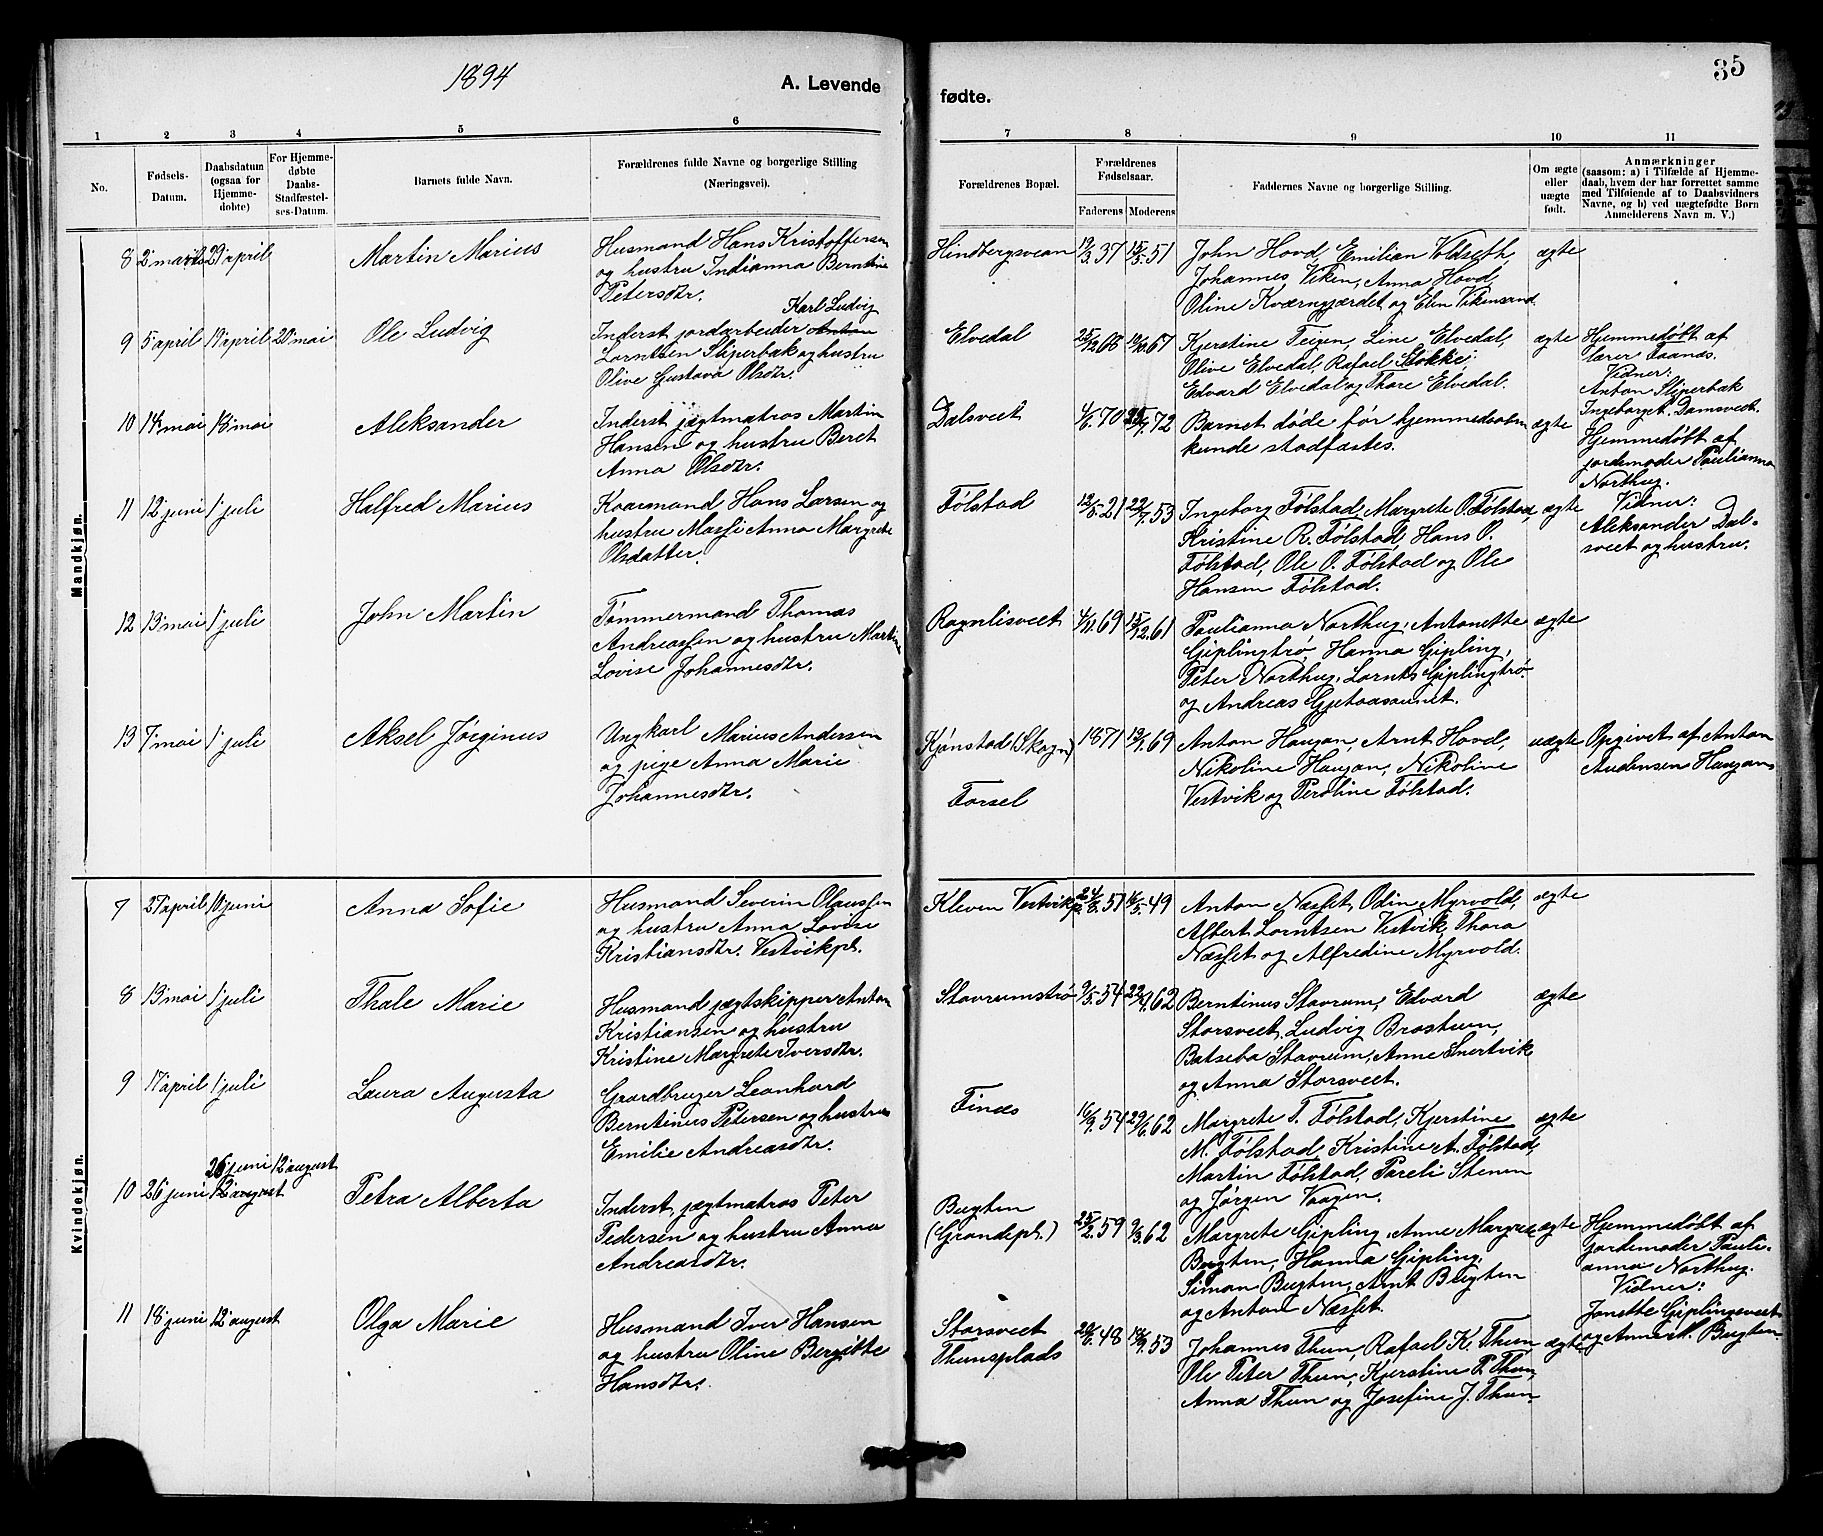 1894
A. Levende
fødte.
35
1 2 3 4 5 6 7 8 9 10 11
No.
Fødsels-
Datum.
Daabsdatum
(ogsaa for
Hjemme-
døbte)
For Hjemme-
døbte
Daabs-
Stadfæstel-
ses-Datum.
Barnets fulde Navn.
Forældrenes fulde Navne og borgerlige Stilling
(Næringsvei).
Forældrenes Bopæl.
Forældrenes
Fødselsaar.
Faderens Moderens
Faddernes Navne og borgerlige Stilling.
Om ægte
eller
uægte
født.
Anmærkninger
(saasom: a) i Tilfælde af Hjemme-
daab, hvem der har forrettet samme
med Tilføiende af to Daabsvidners
Navne, og b) ved uægtefødte Børn
Anmelderens Navn m. V.)
Mandkjøn.
8 2 marts 29 april Martin Marius
Husmand Hans Kristoffersen
og hustru Indianna Berntine
Petersdtr.
Hindbergsvean 19/3.37 15/5.51
John Hovd, Emilian Voldseth,
Johannes Viken, Anna Hovd,
Oline Kværngjærdet og Elen Vikensand
ægte
9 5 april 19 april 20 mai Ole Ludvig
Karl Ludvig
Inderst jordarbeider Anton
Lorntsen Sliperbak og hustru
Olive Gustava Olsdtr.
Elvedal 25/12.68 14/10.67
Kjerstine Teigen, Line Elvedal,
Olive Elvedal, Rafael Stokke,
Edvard Elvedal og Thore Elvedal.
ægte
Hjemmedøbt af
lærer Faanes.
Vidner:
Anton Sliperbak
Ingeborg t. Damsveet.
10 14 mai 18 mai Aleksander
Inderst jægtmatros Martin
Hansen og hustru Beret
Anna Olsdtr.
Dalsveet 4/6.70 25/7.72
Barnet døde før hjemmedaaben
kunde stadfæstes.
ægte
Hjemmedøbt af
jordemoder Paulianna
Northug.
Vidner:
Aleksander Dal-
sveet og hustru.
11 12 juni 1 juli Halfred Marius
Kaarmand Hans Larsen og
hustru Massi Anna Margrete
Olsdatter.
Følstad 12/5.21 22/7.53
Ingeborg Følstad, Margrete O. Følstad,
Kristine R. Følstad, Hans P.
Følstad, Ole O. Følstad og Ole
Hansen Følstad.
ægte
12 13 mai 1 juli John Martin
Tømmermand Thomas
Andreassen og hustru Martine
Lovise Johannesdtr.
Ragnlisveet 4/11.69 15/12.61
Paulianna Northug, Antonette
Giplingtrø, Hanna Gipling,
Peter Northug, Lornts Giplingtrø
og Andreas Gjetaasaunet.
ægte
13 7 mai 1 juli Aksel Jørginus
Ungkarl Marius Andersen
og pige Anna Marie
Johannesdtr.
Kjønstad (Skogn)
Forsel
1871 19/1.69
Anton Haugan, Arnt Hovd,
Nikoline Haugan, Nikoline
Vestvik og Peroline Følstad.
uægte
Opgivet af Anton
Andersen Haugan
Kvindekjøn.
7 27 april 10 juni Anna Sofie
Husmand Severin Olaussen
og hustru Anna Lovise
Kristiansdtr. Vestvikpl.
Kleven Vestvikpl. 24/8.51 16/5.49
Anton Næsset, Odin Myrvold,
Albert Lorntsen Vestvik, Thora
Næsset og Alfredine Myrvold.
ægte
8 13 mai 1 juli Thale Marie
Husmand jægtskipper Anton
Kristiansen og hustru
Kristine Margrete Iversdtr.
Stavrumstrø 9/5.54 22/9.62
Berntinus Stavrum, Edvard
Storsveet, Ludvig Brostuen,
Batseba Stavrum, Anne Snertvik
og Anna Storsveet.
ægte
9 17 april 1 juli Laura Augusta
Gaardbruger Leonhard
Berntinus Petersen og hustru
Emilie Andreasdtr.
Finds 16/9.54 29/6.62
Margrete T. Følstad, Kjerstine
M. Følstad, Kristine A. Følstad,
Martin Følstad, Pareli Stenen
og Jørgen Vaagen.
ægte
26 juni 12 august
10 26 juni 12 august Petra Alberta
Inderst, jægtmatros Peter
Pedersen og hustru Anna
Andreasdtr.
Bugten
(Grandepl.)
25/2.59 9/3.62
Margrete Gipling, Anne Margrete
Bugten, Hanna Gipling,
Simon Bugten, Arnt Bugten
og Anton Næsset.
ægte
Hjemmedøbt af
jordemoder Pauli-
anna Northug.
Vidner:
Jonette Giplingsveet
og Anne M. Bugten
11 18 juni 12 august Olga Marie
Husmand Iver Hansen
og hustru Oline Bergitte
Hansdtr.
Storsveet
Thunsplads
20/6.48 18/9.53
Johannes Thun, Rafael K. Thun,
Ole Peter Thun, Kjerstine P. Thun,
Anna Thun og Josefine J. Thun.
ægte